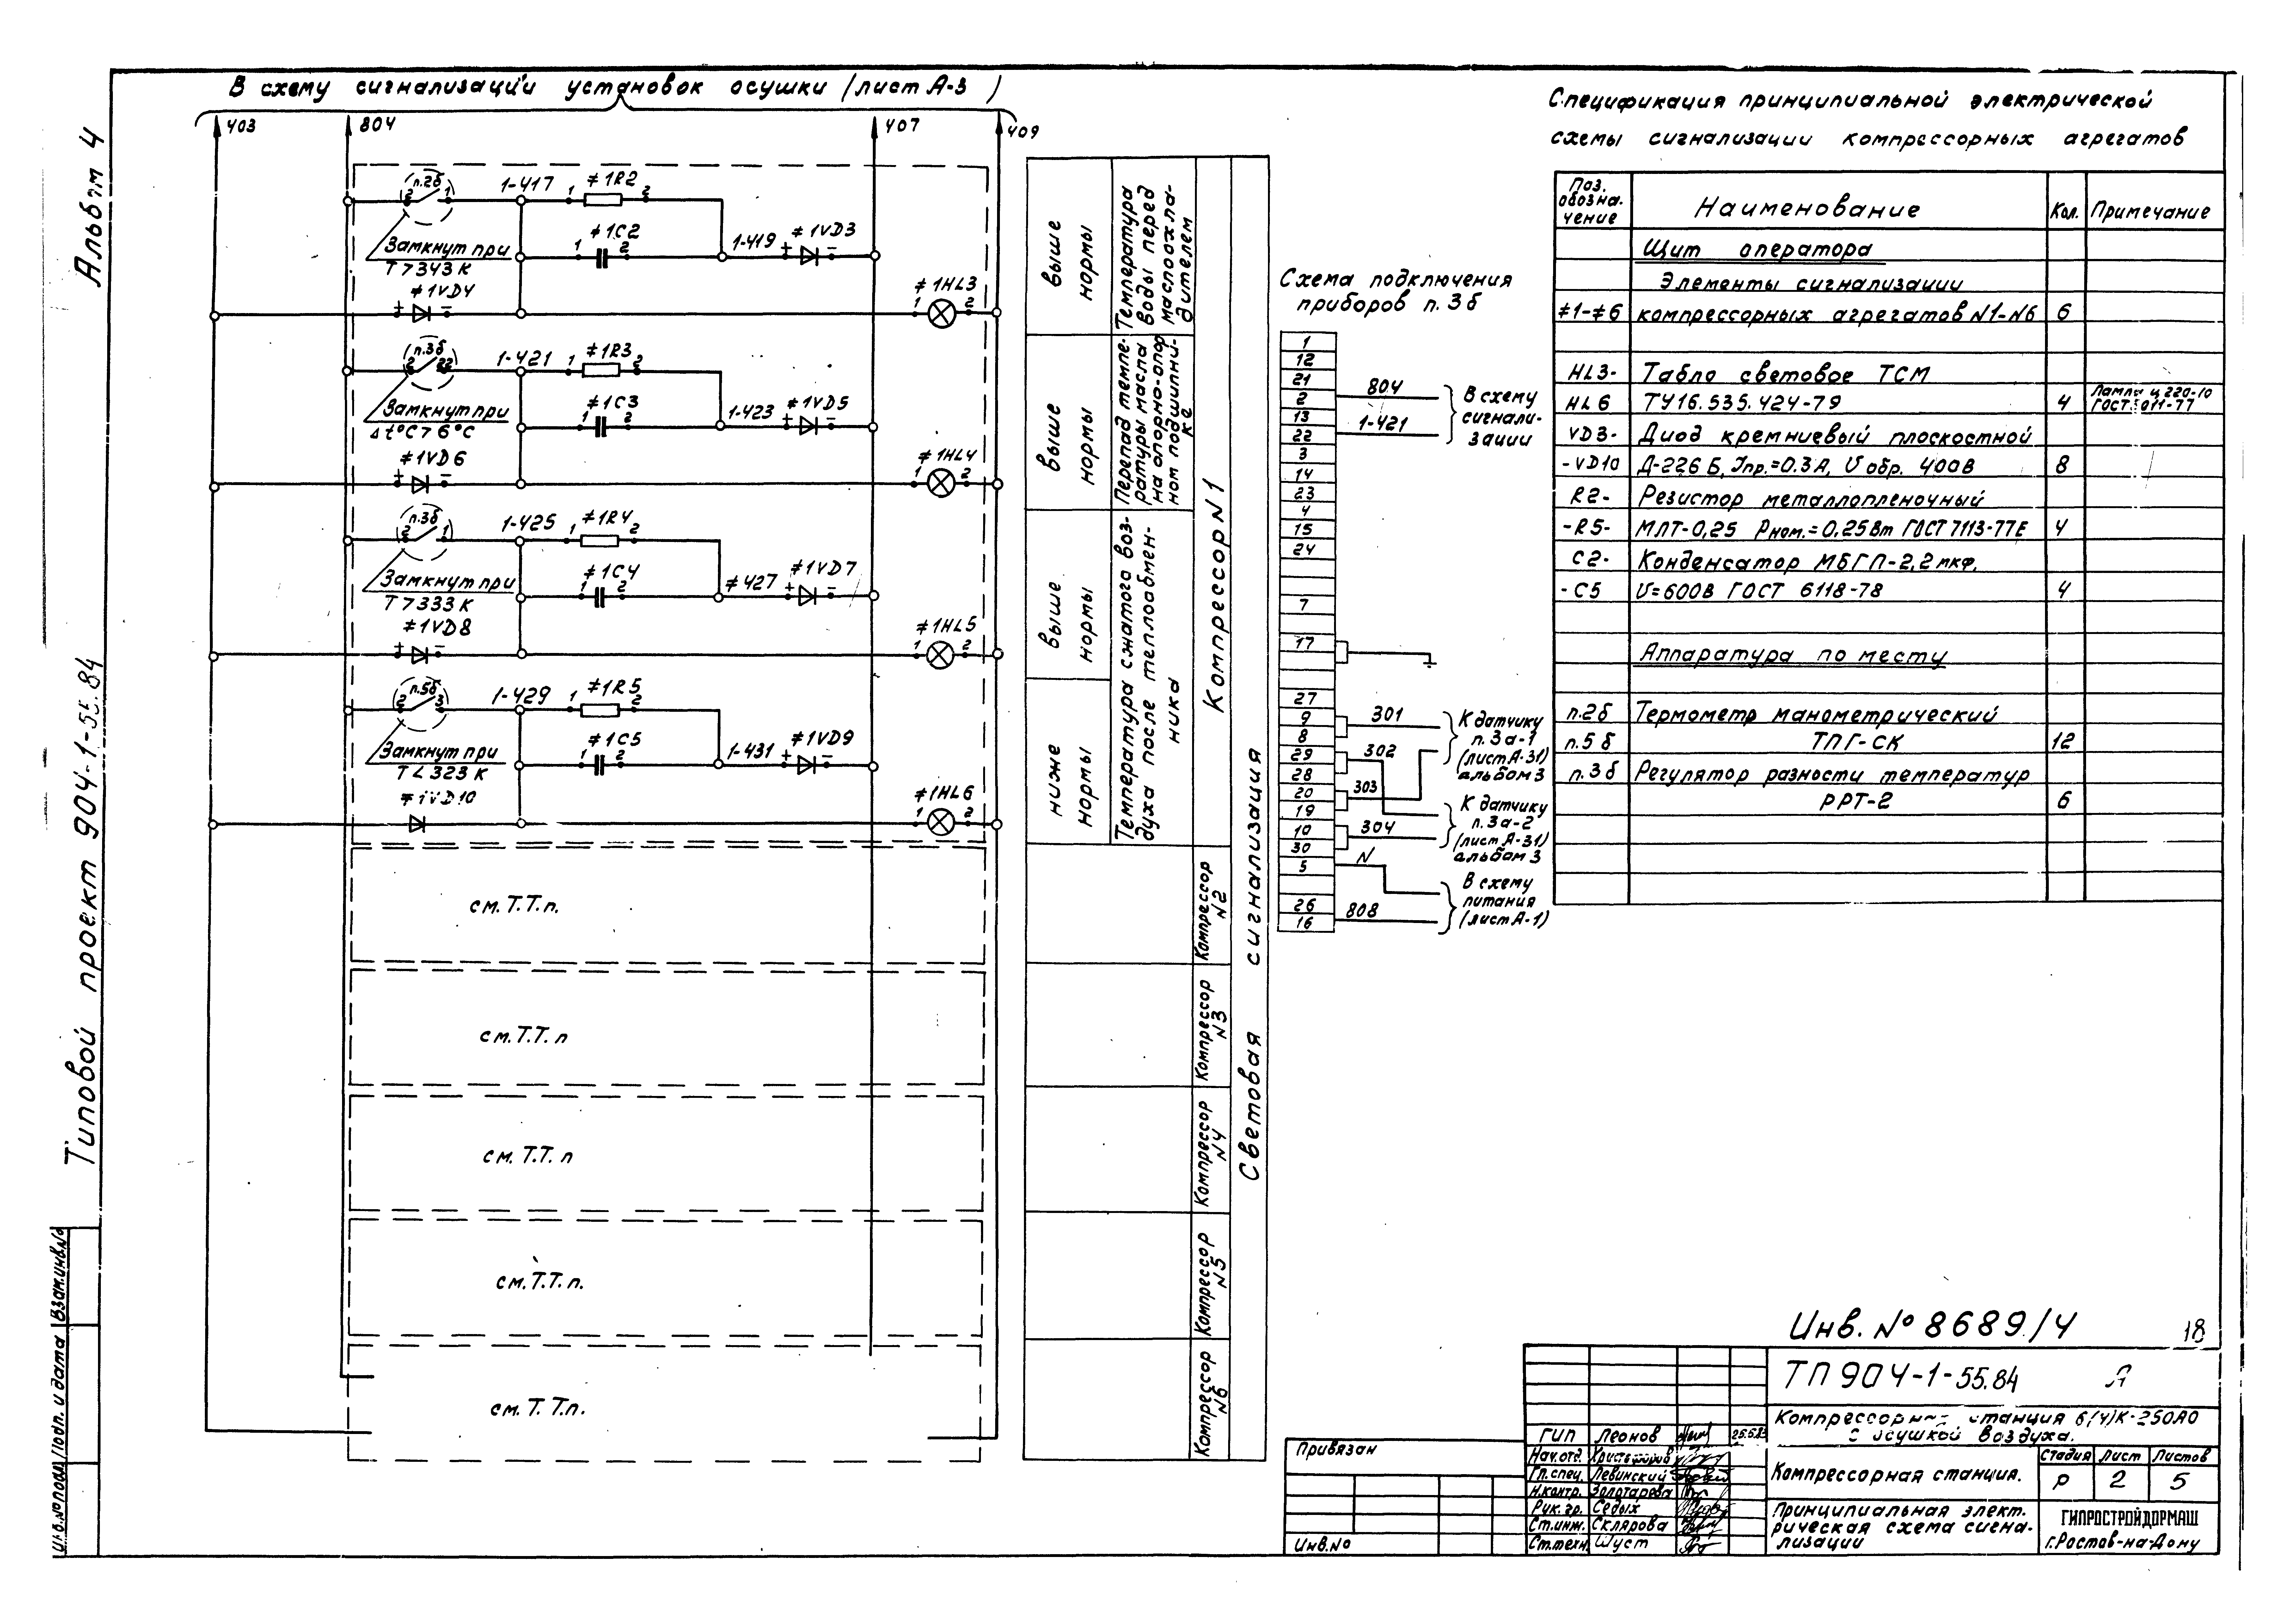 В схему сигнализации установок осушки (лист А-3 )
403
804
407
409
Альбом 4
Типовой проект 904-1-55.84
п.2б
2
1
1-417
1
≠1R2
2
Замкнут при
Т>343К
1
≠1С2
2
1-419
+
≠1VD3
-
+
≠1VD4
-
≠1HL3
1
2
п.3б
2
22
1-421
1
≠1R3
2
Замкнут при
Δt°C>6°C
1
≠1С3
2
1-423
+
≠1VD5
-
≠1VD6
+
-
≠1HL4
1
2
п.3б
2
1
1-425
1
≠1R4
2
Замкнут при
Т>333К
1
≠1С4
2
≠427
+
≠1VD7
-
≠1VD8
+
-
≠1HL5
1
2
п.5б
2
3
1-429
1
≠1R5
2
Замкнут при
Т<323К
1
≠1С5
2
1-431
+
≠1VD9
-
≠1VD10
≠1HL6
1
2
см. Т.Т.п.
см. Т.Т. п
см. Т.Т. п
см. Т.Т. п.
см. Т. Т.п.
выше
нормы
Температура
воды перед
маслоохла-
дителем
выше
нормы
Перепад темпе-
ратуры масла
на опорно-опор
ном подшипни-
ке
выше
нормы
ниже
нормы
Температура сжатого воз-
духа после теплообмен-
ника
Компрессор N1
Компрессор
N2
Компрессор
N3
Компрессор
N4
Компрессор
N5
Компрессор
N6
Световая сигнализация
Схема подключения
приборов п. 3б
1
12
21
2
13
22
3
14
23
4
15
24
7
17
27
9
8
29
28
20
19
10
30
5
26
16
804
1-421
В схему
сигнали-
зации
301
302
303
304
N
808
К датчику
п. 3а-1
(лист А-31)
альбом 3
К датчику
п. 3а-2
(лист А-31)
альбом 3
В схему
питания
(лист А-1)
Спецификация принципиальной электрической
схемы сигнализации компрессорных агрегатов
Поз. обозна-чение Наименование Кол. Примечание
Щит оператора
Элементы сигнализации
≠1-≠6 компрессорных агрегатов N1-N6 6
HL3- Табло световое ТСМ
HL6 ТУ16.535.424-79 4 Лампа Ц 220-10
VD3- Диод кремниевый плоскостной
-VD10 Д-226Б, Jпр.=0.3А, U обр. 400В 8
R2- Резистор металлопленочный
-R5- МЛТ-0,25 Рном.=0,25Вт ГОСТ 7113-77Е 4
С2- Конденсатор МБГП-2,2мкф,
-С5 U=600В ГОСТ 6118-78 4
Аппаратура по месту
п.2б Термометр манометрический
п.5б ТПГ-СК 12
п.3б Регулятор разности температур
РРТ-2 6
Инв. № 8689/4
18
ТП 904-1-55.84 А
Компрессорная станция 6(4)К-250АО
с осушкой воздуха.
Компрессорная станция.
Стадия Лист Листов
Р 2 5
Принципиальная элект-
рическая схема сигна-
лизации
ГИПРОСТРОЙДОРМАШ
г.Ростов-на-Дону
ГИП Леонов 25.5.83
Нач.отд. Христофоров
Гл.спец. Левинский
Н.контр. Золотарева
Рук.гр. Седых
Ст.инж. Склярова
Ст.техн. Шуст
Привязан
Инв.№
Инв.№подл. Подп. и дата Взам.инв.№